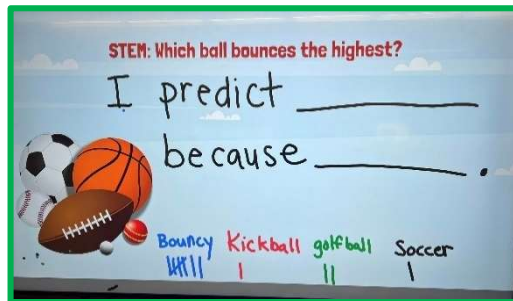 STEM: Which ball bounces the highest?
I predict
because .
Bouncy Kickball golfball Soccer